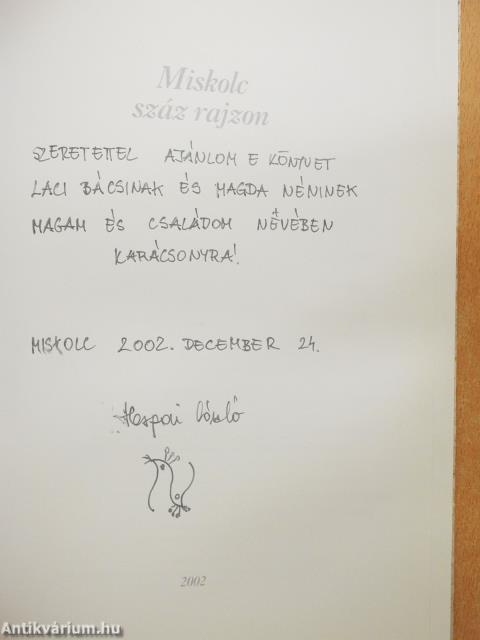 Miskolc
száz rajzon
SZERETETTEL AJÁNLOM E KÖNYVET
LACI BÁCSINAK ÉS MAGDA NÉNINEK
MAGAM ÉS CSALÁDOM NEVÉBEN
KARÁCSONYRA!
MISKOLC 2002. DECEMBER 24.
László
2002
Antikvárium.hu